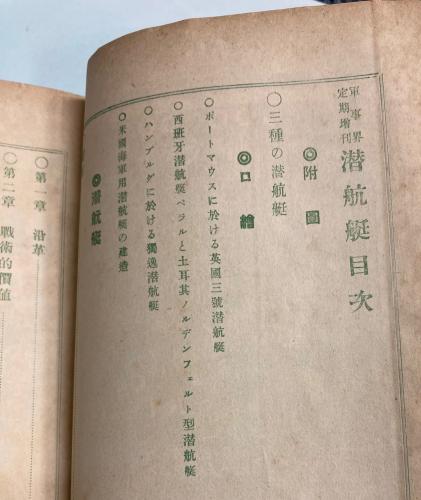 軍事界
定期増刊
潜航艇目次
◎附圖
○三種の潜航艇
◎口繪
○ポートマウスに於ける英國三號潜航艇
○西班牙潜航艇ペラルと土耳其ノルデンフェルト型潜航艇
○ハンブルグに於ける獨逸潜航艇
○米國海軍用潜航艇の建造
◎潜航艇
○第一章 沿革
○第二章 戰術的價値